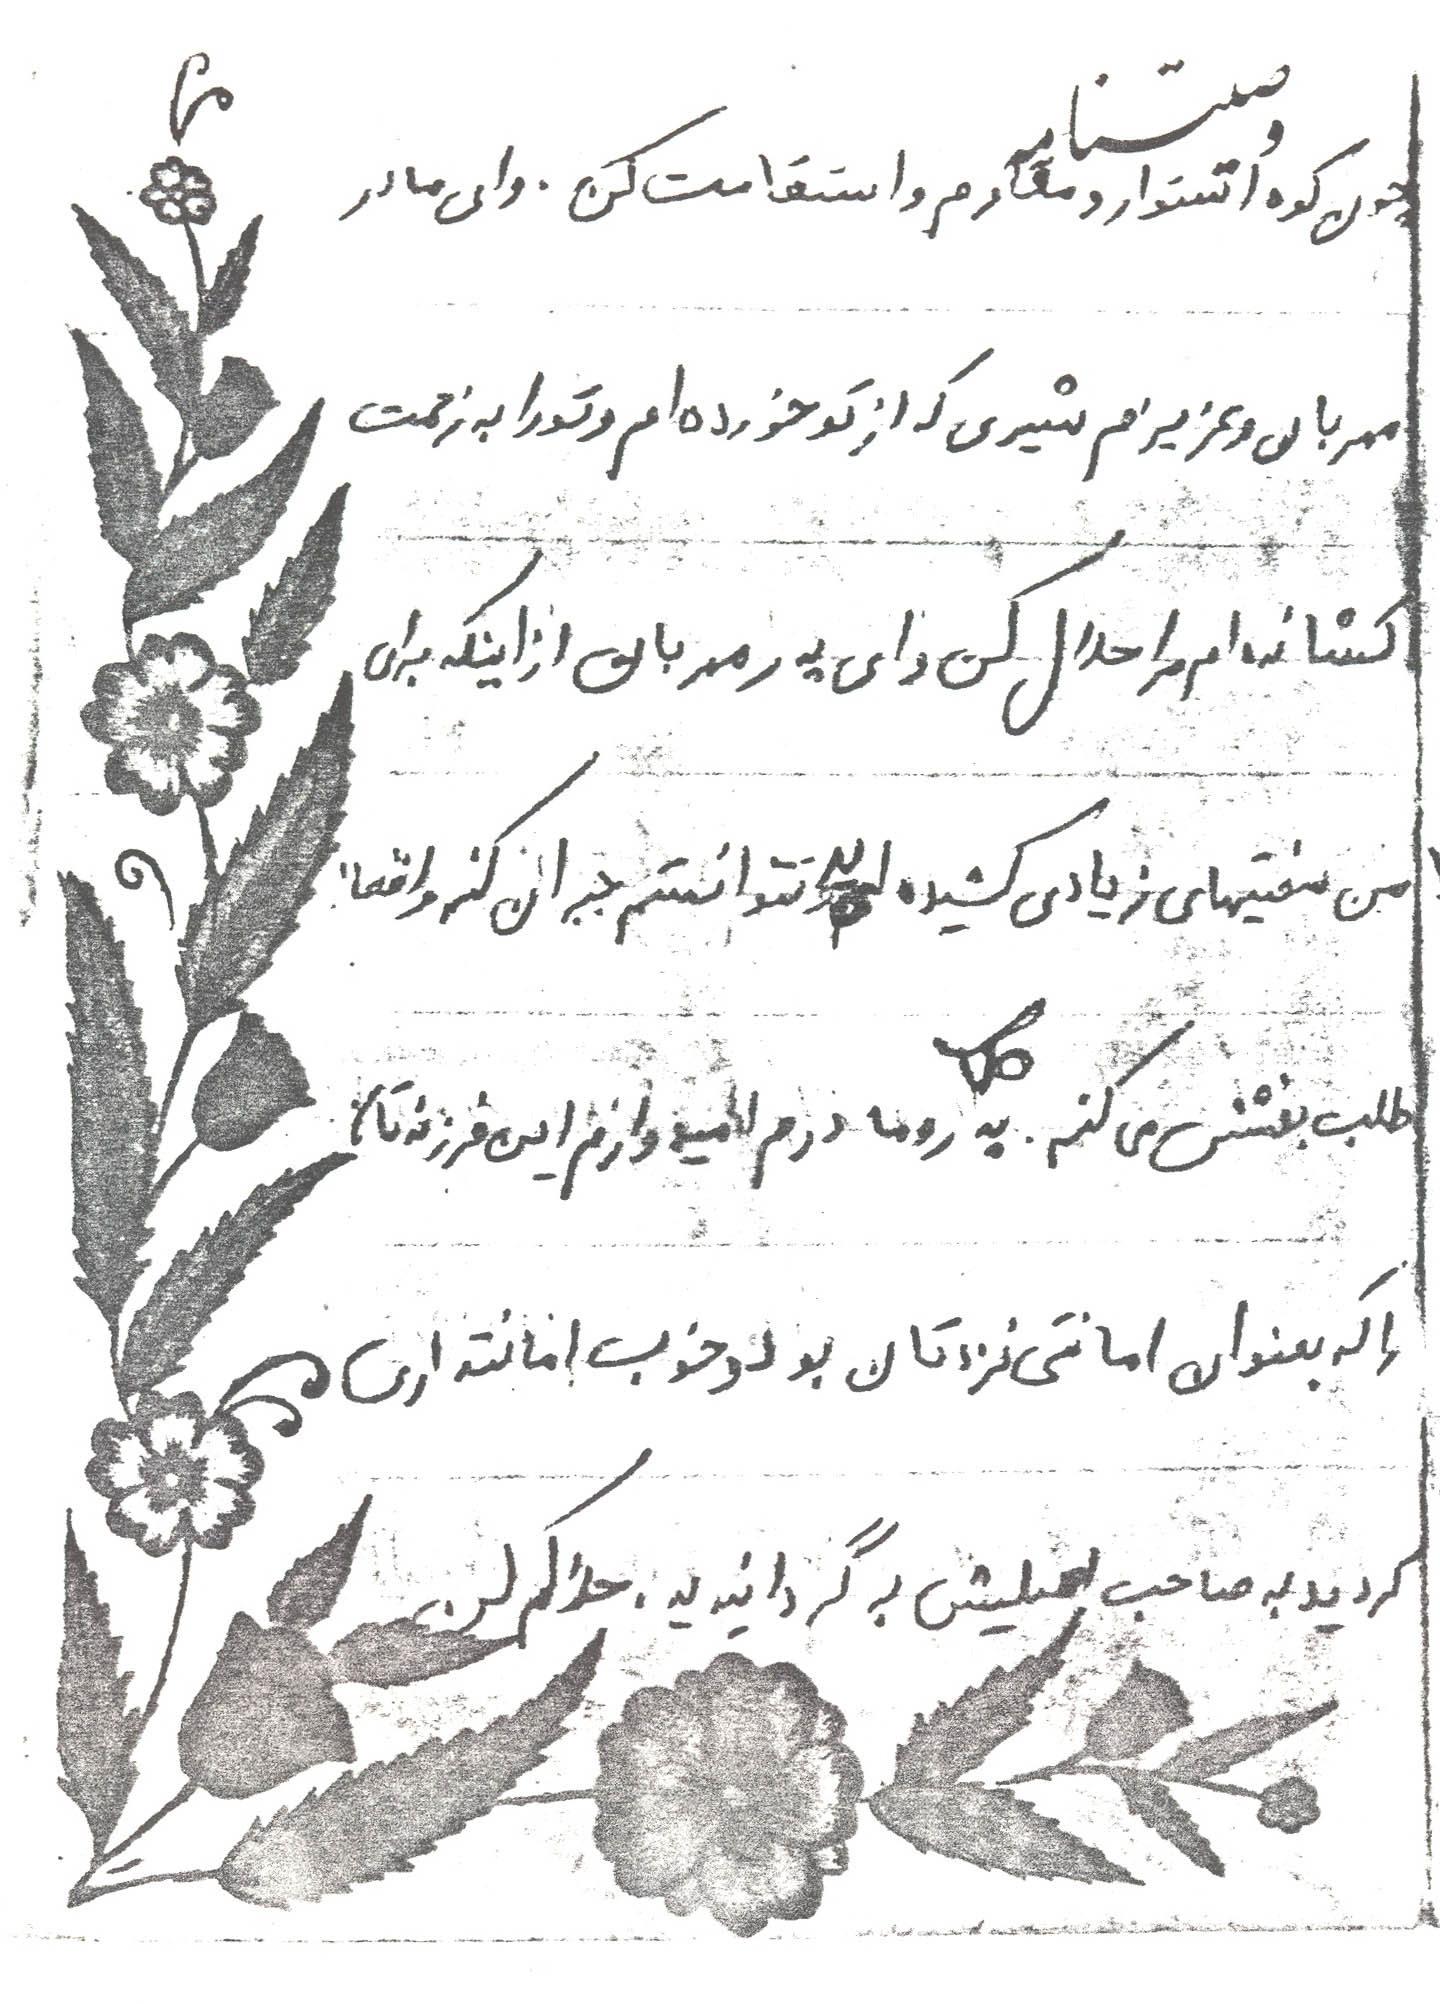 وصیتنامه
چون کوه استوار و مقاوم و استقامت کن . و ای مادر
مهربان و عزیزم شیری که از تو خورده ام و تو را به زحمت
کشانده ام مرا حلال کن و ای پدر مهربان از اینکه برای
من سختیهای زیادی کشیده اید نتوانستم جبران کنم واقعا"
طلب بخشش می کنم . پدر و مادرم امیدوارم این فرزندتان
را که بعنوان امانتی نزدتان بود و خوب امانتداری
کردید به صاحب اصلیش برگردانید . حلالم کنید